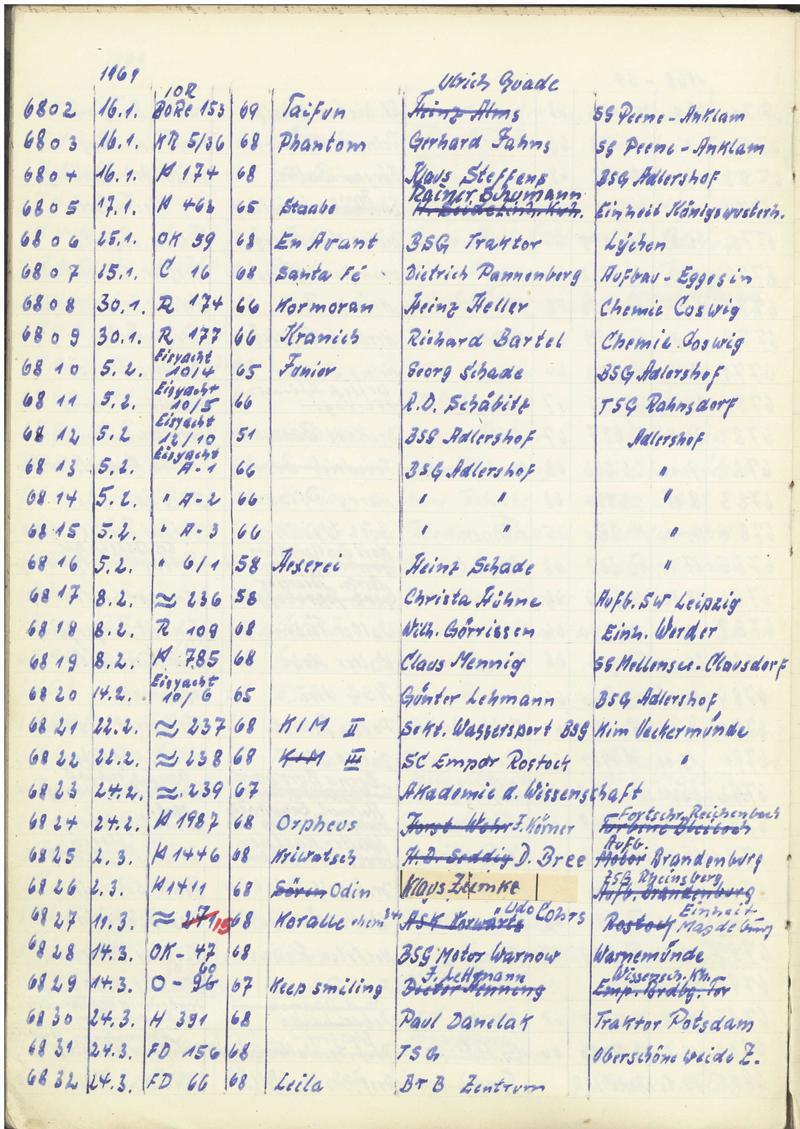 1969
6802 16.1. 10R BoRe 153 69 Taifun Ulrich Goade Heinz Alms SG Peene-Anklam
6803 16.1. KR 5/36 68 Phantom Gerhard Jahns SG Peene-Anklam
6804 16.1. H 174 68 Klaus Steffens BSG Adlershof
6805 17.1. H 462 65 Staabe Rainer Schumann Einheit Königswusterh.
6806 25.1. OK 59 68 En Avant BSG Traktor Lychen
6807 25.1. C 16 68 Santa Fé Dietrich Pannenberg Aufbau-Eggesin
6808 30.1. R 174 66 Kormoran Heinz Heller Chemie Coswig
6809 30.1. R 177 66 Kranich Richard Bartel Chemie Coswig
6810 5.2. Eisyacht 10/4 65 Junior Georg Schade BSG Adlershof
6811 5.2. Eisyacht 10/5 66 R.D. Schäbitz TSG Rahnsdorf
6812 5.2 Eisyacht 12/10 51 BSG Adlershof Adlershof
6813 5.2. Eisyacht A-1 66 BSG Adlershof "
6814 5.2. " A-2 66 " " "
6815 5.2. " A-3 66 " " "
6816 5.2. " 6/1 58 Hexerei Heinz Schade "
6817 8.2. ≈ 236 58 Christa Hühne Aufb. SW Leipzig
6818 8.2. R 109 68 Wilh. Görrissen Einh. Werder
6819 8.2. H 785 68 Claus Mennig SG Mellensee-Clausdorf
6820 14.2. Eisyacht 10/6 65 Günter Lehmann BSG Adlershof
6821 22.2. ≈ 237 68 KIM II Sekt. Wassersport BSG Kim Ueckermünde
6822 22.2. ≈ 238 68 KIM III SC Empor Rostock "
6823 24.2. ≈ 239 67 Akademie d. Wissenschaft
6824 24.2. H 1987 68 Orpheus Horst Wehr J. Körner Fortschr. Reichenbach
6825 2.3. H 1446 68 Kriwatsch H.D. Seddig D. Bree Aufb. Motor Brandenburg
6826 2.3. H 1411 68 Sören Odin Klaus Ziemke ZSG Rheinsberg Aufb. Brandenburg
6827 11.3. ≈ 15 68 Koralle ASK Vorwärts Udo Cohrs Rostock Einheit Magdeburg
6828 14.3. OK-47 68 BSG Motor Warnow Warnemünde
6829 14.3. O-96 60 67 Keep smiling J. Lettmann Dieter Henning Wissensch. Emp. Brdbg. Tor
6830 24.3. H 391 68 Paul Danelak Traktor Potsdam
6831 24.3. FD 156 68 TSG Oberschöneweide Z.
6832 24.3. FD 66 68 Leila BTB Zentrum